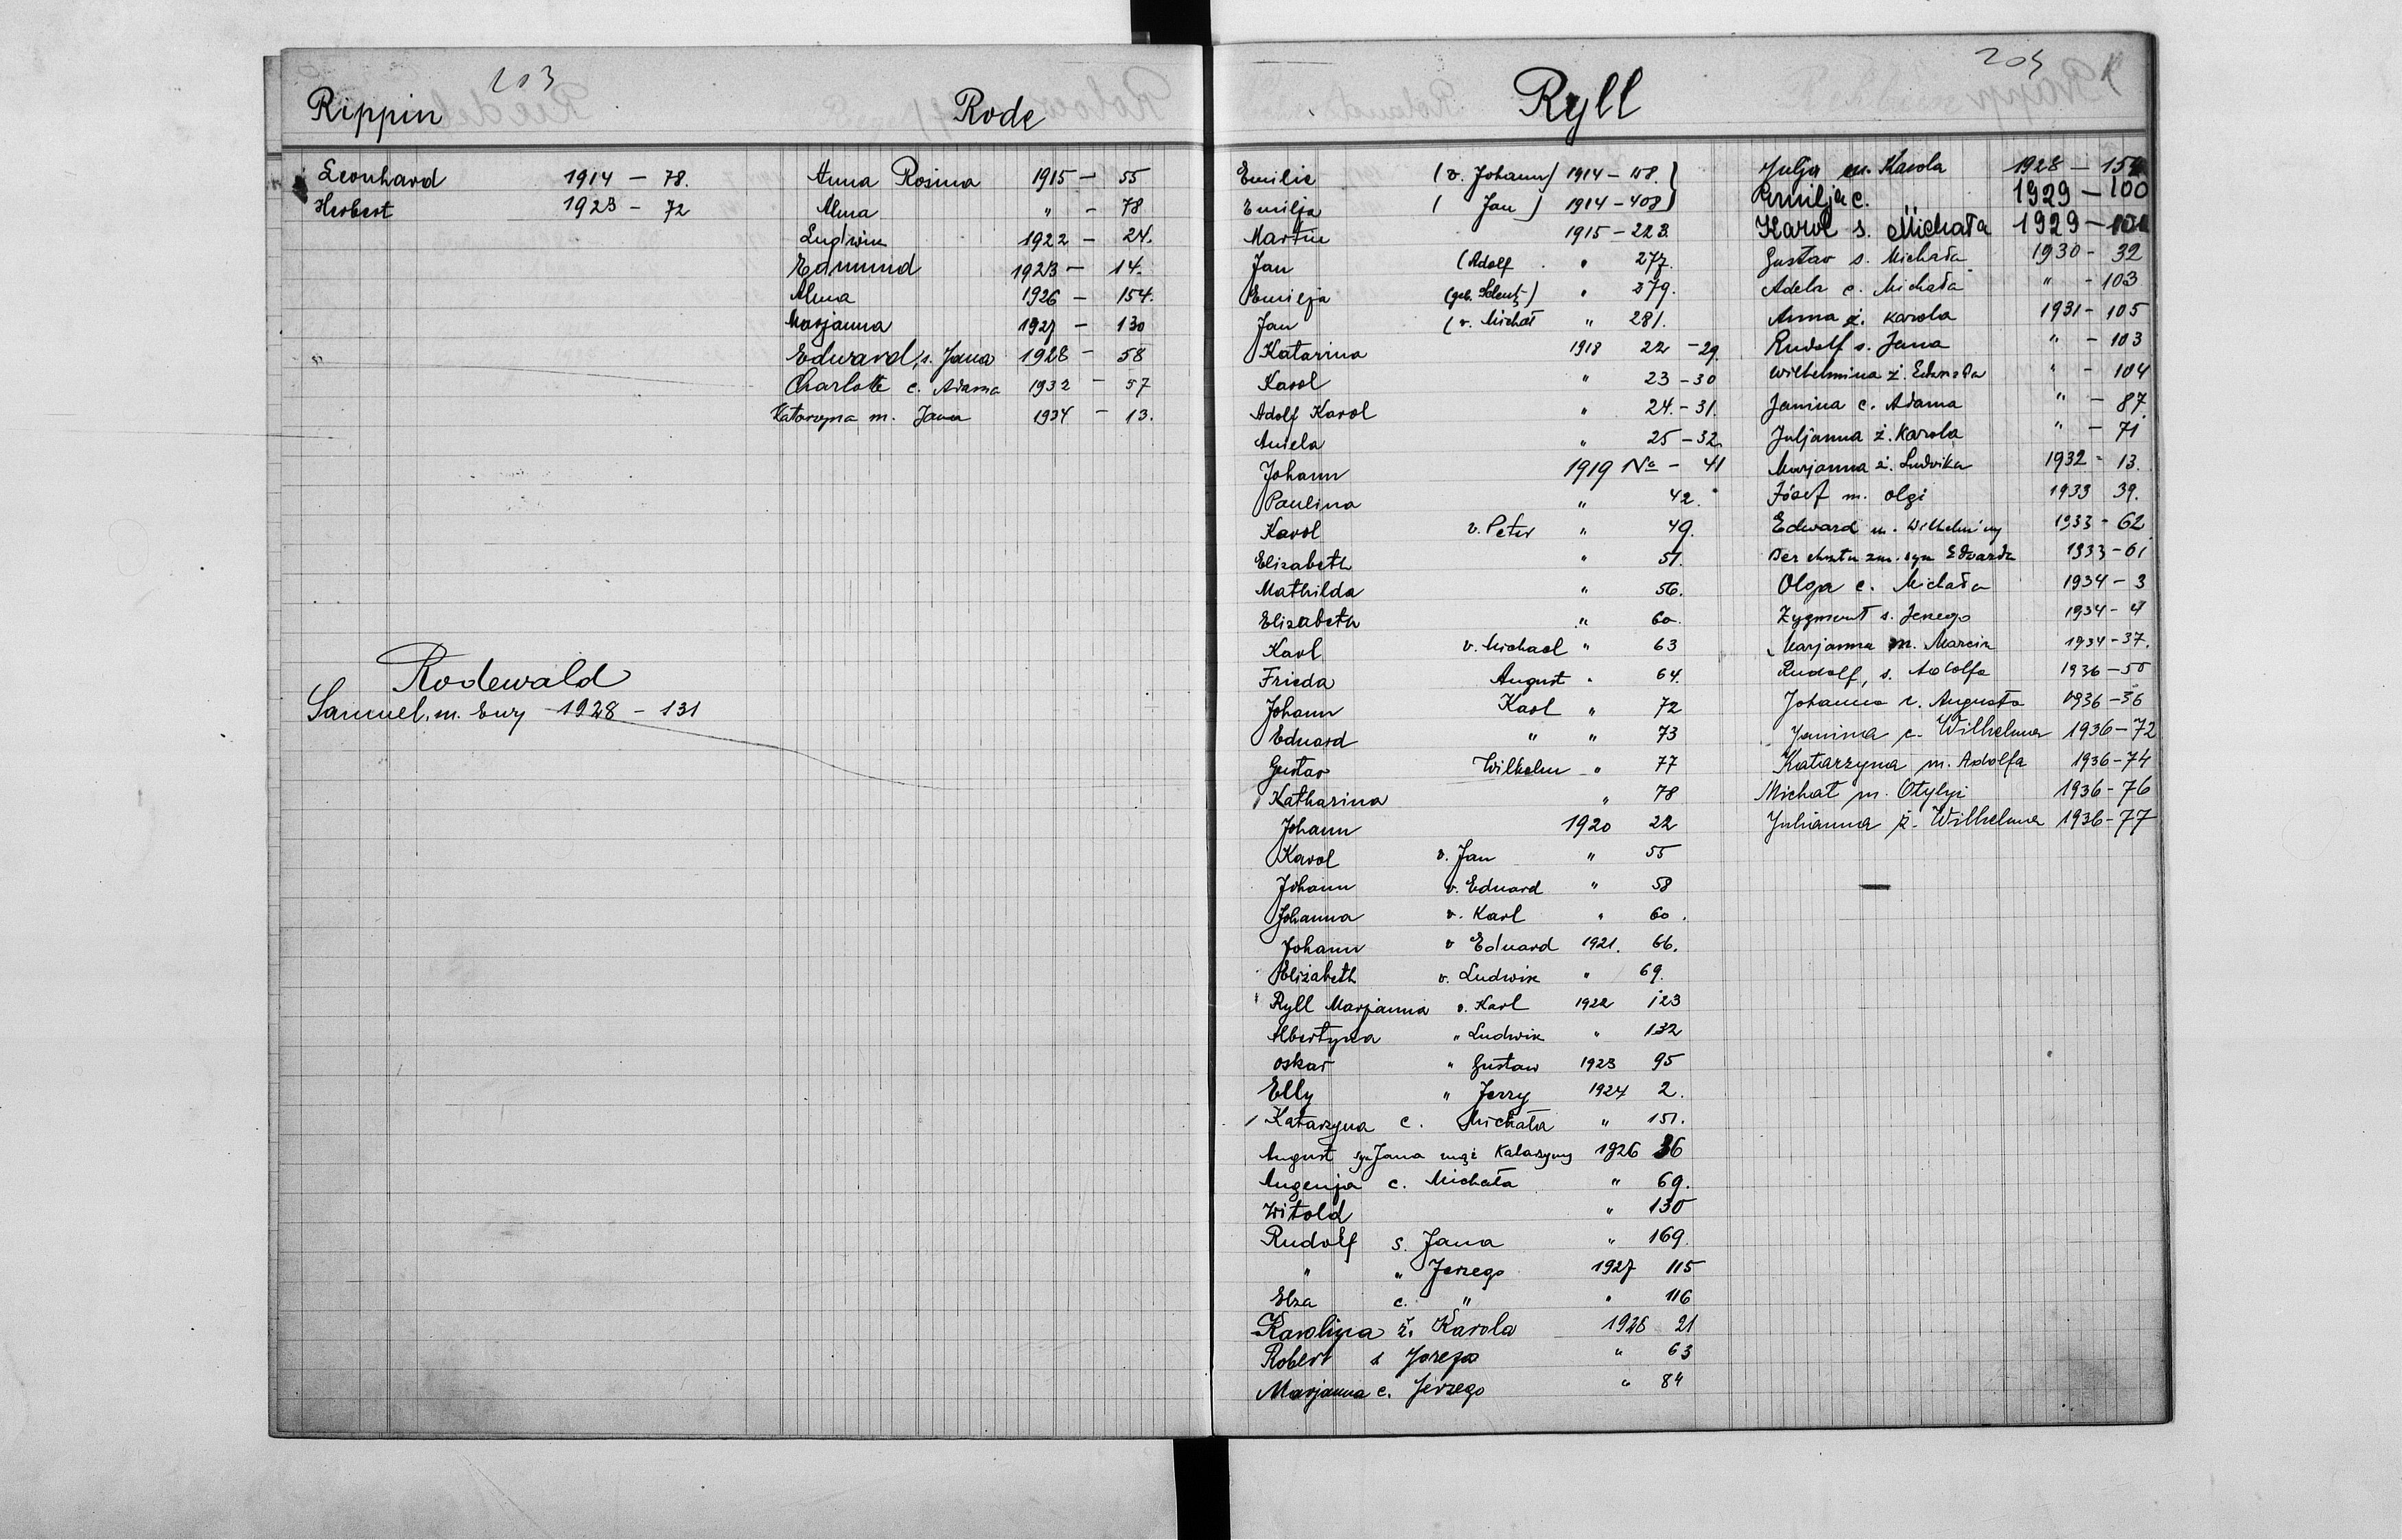 203
Rippin
Leonhard 1914 - 78.
Herbert 1923 - 72
Rodewald
Samuel, m. Ewy 1928 - 131
Rode
Anna Rosina 1915 - 55
Alma " - 78
Ludwik 1922 - 24.
Edmund 1923 - 14.
Alma 1926 - 154.
Marjanna 1927 - 130
Edward, s. Jana 1928 - 58
Charlotte c. Adama 1932 - 57
Katarzyna m. Jana 1934 - 13.
Ryll
Emilie (v. Johann) 1914 - 408.
Emilja ( Jan ) 1914 - 408
Martin 1915 - 223.
Jan (Adolf " 277.
Emilja (geb. ) " 279.
Jan (v. Michał " 281.
Katarina 1918 22 - 29
Karol " 23 - 30
Adolf Karol " 24. - 31.
Aniela " 25 - 32
Johann 1919 No - 41
Paulina " 42.
Karol v. Peter " 49.
Elisabeth " 51.
Mathilda " 56.
Elizabeth " 60.
Karl v. Michael " 63
Frieda August " 64.
Johann Karl " 72
Eduard " " 73
Gustav Wilhelm " 77
Katharina " 78
Johann 1920 22
Karol v. Jan " 55
Johann v. Eduard " 58
Johanna v. Karl " 60.
Johann v Eduard 1921. 66.
Elizabeth v. Ludwik " 69.
Ryll Marjanna v. Karl 1922 123
Albertyna " Ludwik " 132
Oskar " Gustaw 1923 95
Elly " Jerzy 1924 2.
Katarzyna c. Michała " 151.
August syn Jana mąż Katarzyny 1926 36
Augenja c. Michała " 69.
Witold " 130
Rudolf s. Jana " 169.
" " Jerzego 1927 115
Elza c. " " 116
Karolina ż. Karola 1928 21
Robert s " 63
Marjanna c. Jerzego " 84
Julja m. Karola 1928 -
Emilja c. 1929 - 100
Karol s. Michała 1929 - 101
Gustav s. Michała 1930 - 32
Adela c. Michała " - 103
Anna ż. Karola 1931 - 105
Rudolf s. Jana " - 103
Wilhelmina ż. Edwarda " - 104
Janina c. Adama " - 87.
Juljanna ż. Karola " - 71
Marjanna ż. Ludwika 1932 - 13.
Józef m. Olgi 1933 39.
Edward m. Wilhelminy 1933 - 62
Bez chrztu zm. syn Edwarda 1933 - 61
Olga c. Michała 1934 - 3
Zygmunt s. Jerzego 1934 - 4
Marjanna m. Marcin 1934 - 37.
Rudolf, s. Adolfa 1936 - 50
Johanna c. Augusta 1936 - 36
Janina c. Wilhelma 1936 - 72
Katarzyna m. Adolfa 1936 - 74
Michał m. Otylji 1936 - 76
Julianna ż. Wilhelma 1936 - 77